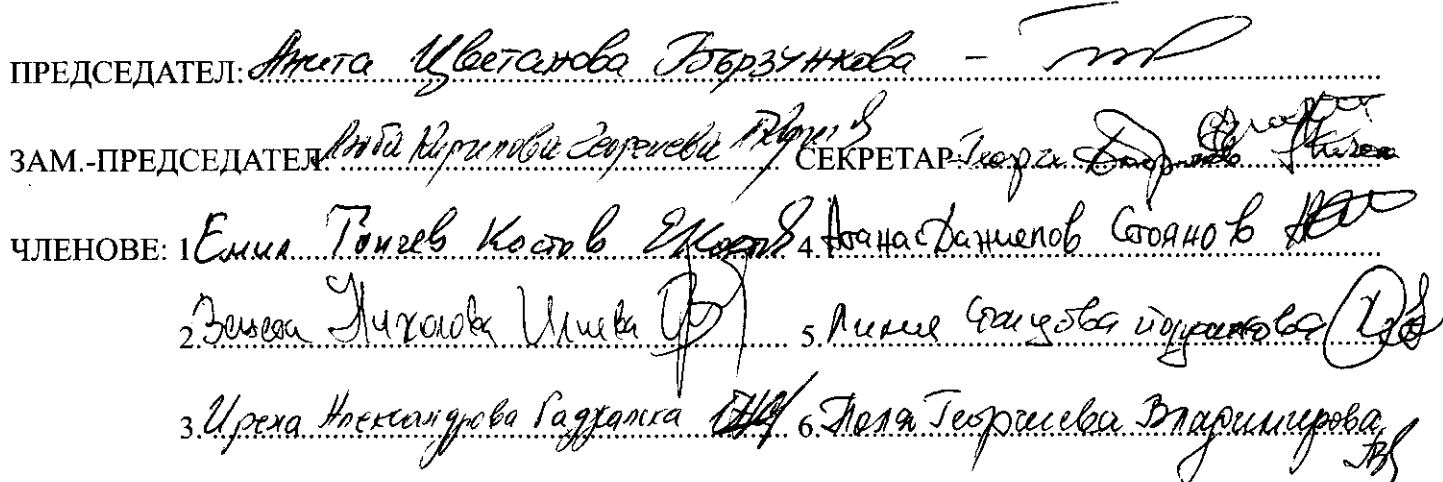 ПРЕДСЕДАТЕЛ: Анита Цветанова Бързункова -
ЗАМ.-ПРЕДСЕДАТЕЛ Кирилова Георгиева СЕКРЕТАР Георги
ЧЛЕНОВЕ: 1 Емил Тончев Костов 4. Атанас Даниелов Стоянов
2. Николова Илиева 5. Лилия
3. Ирена Александрова 6. Поля Георгиева Владимирова